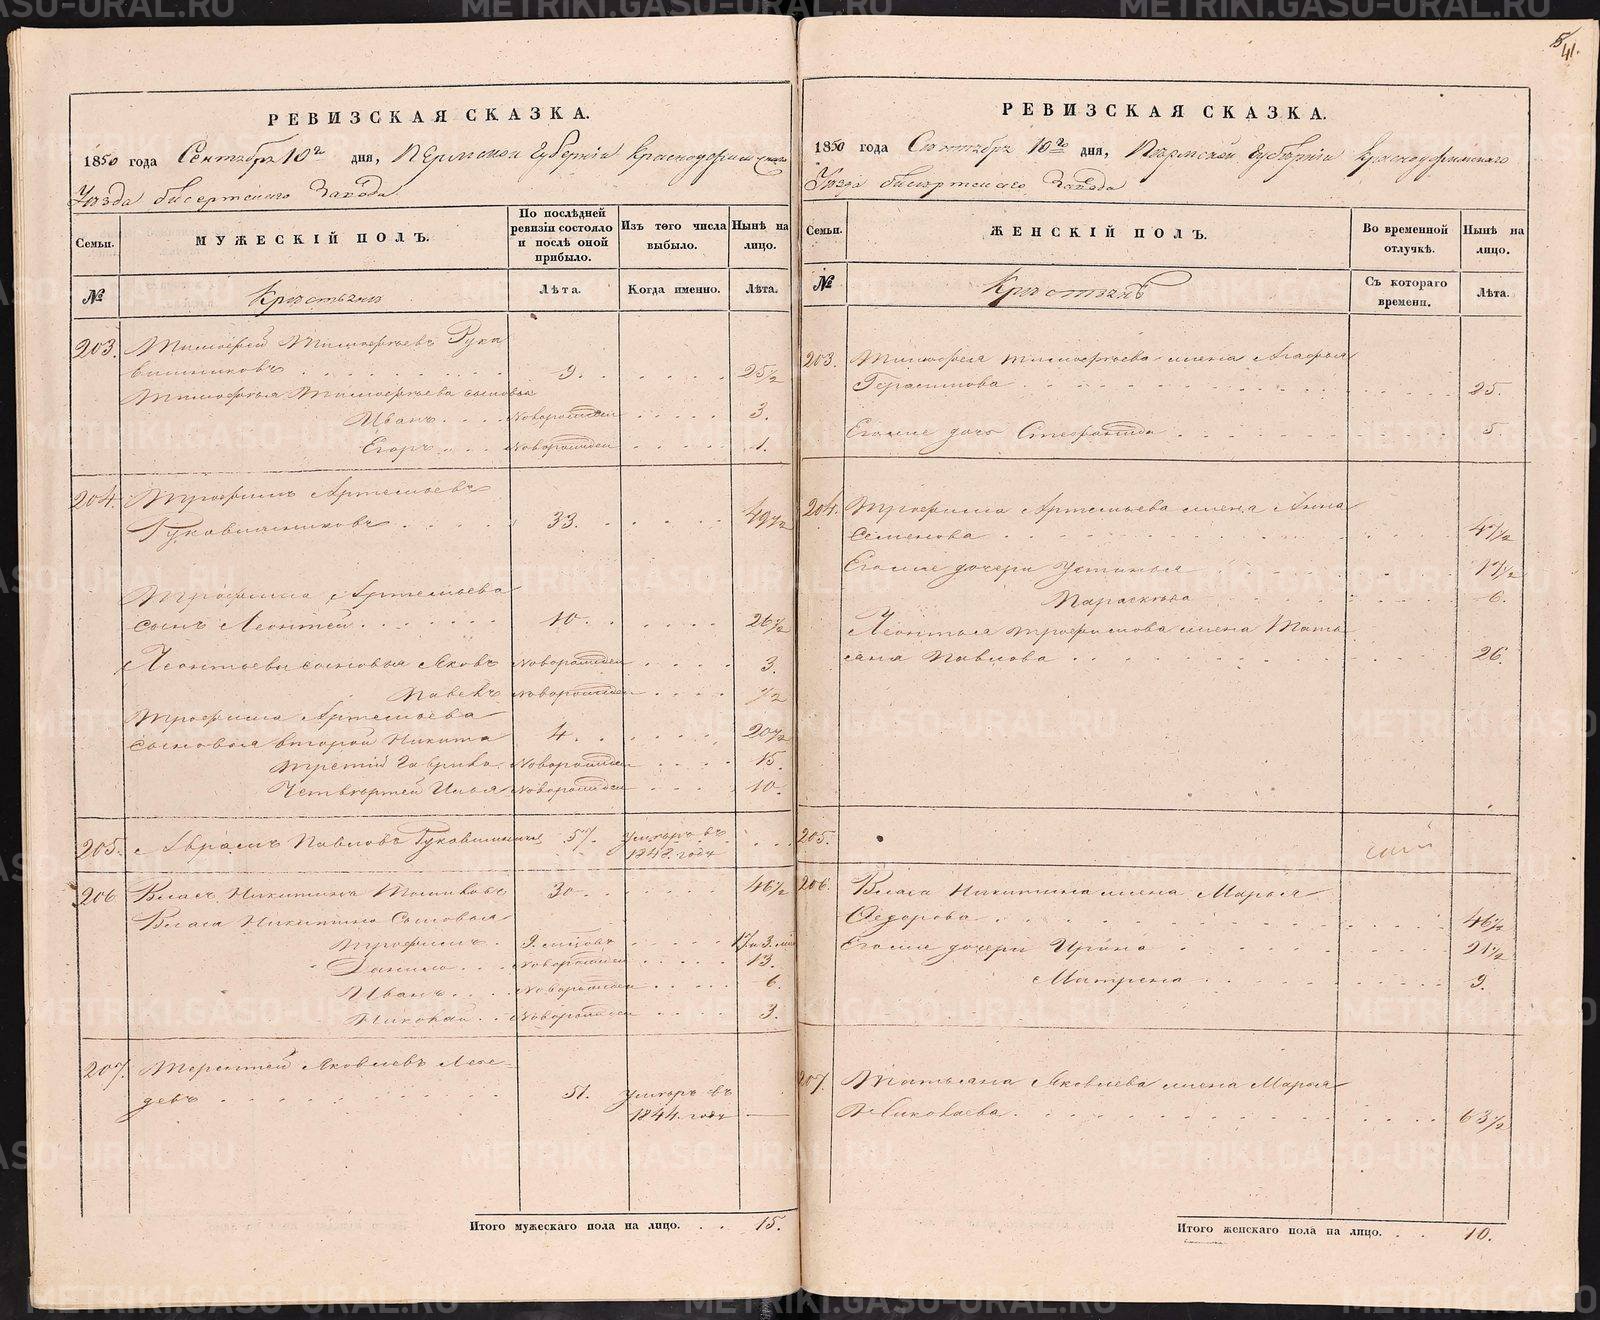 41.
РЕВИЗСКАЯ СКАЗКА.
1850 года Сентября 10го дня, Пермской Губернiи Красноуфимскаго
Уѣзда бисертскаго Завода
Семьи.
МУЖЕСКІЙ ПОЛЪ.
По послѣдней ревизіи состояло и послѣ оной прибыло.
Изъ того числа выбыло.
Нынѣ на лицо.
№
Крестьянъ
Лѣта.
Когда именно.
Лѣта.
203. Тимофей Тимофѣевъ Рука
вишниковъ 9. 25½
Тимофѣя Тимофѣева сыновья
Иванъ Новорожден 3.
Егоръ Новорожден 1.
204. Трофимъ Артемьевъ
Рукавишниковъ 33. 49½
Трофима Артемьева
сынъ Леонтей 10. 26½
Леонтьевы сыновья Яковъ Новорожден 3.
Павелъ Новорожден ½
Трофима Артемьева
сыновья второй Никита 4. 20½
третій Гаврило Новорожден 15.
Четвертой Илья Новорожден 10.
205. Аврамъ Павловъ Рукавишников 57. умеръ въ
1848 году
206 Власъ Никитинъ 30. 46½
Власа Никитина Сыновья
Трофимъ 9. мѣсов
Данило Новорожден 13.
Иванъ Новорожден 6.
Николай Новорожден 3.
207. Терентей Яковлевъ Лебе-
девъ 51. умеръ въ
1844. году
Итого мужескаго пола на лицо. 15.
РЕВИЗСКАЯ СКАЗКА.
1850 года Сентября 10го дня, Пермской Губернiи Красноуфимскаго
Уѣзда бисертскаго Завода
Семьи.
ЖЕНСКІЙ ПОЛЪ.
Во временной отлучкѣ.
Нынѣ на лицо.
№
Крестьянъ
Съ котораго времени.
Лѣта.
203. Тимофея Тимофѣева жена Агафья
Герасимова 25.
Егоже дочь Стефанида 5.
204. Трофима Артемьева жена Анна
Семенова 47½
Егоже дочери Устинья 17½
Параскѣва 6.
Леонтья трофимова жена Тать
яна Павлова 26.
205.
206. Власа Никитина жена Марья
Федорова 46½
Егоже дочери Ирина 21½
Матрена 9.
207. Яковлева жена Марья
Николаева. 63½
Итого женскаго пола на лицо. 10.
METRIKI.GASO-URAL.RU